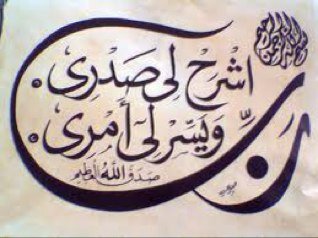 بسم الله الرحمن الرحيم
رب
اشرح لى صدرى
ويسر لى أمرى
صدق الله العظيم